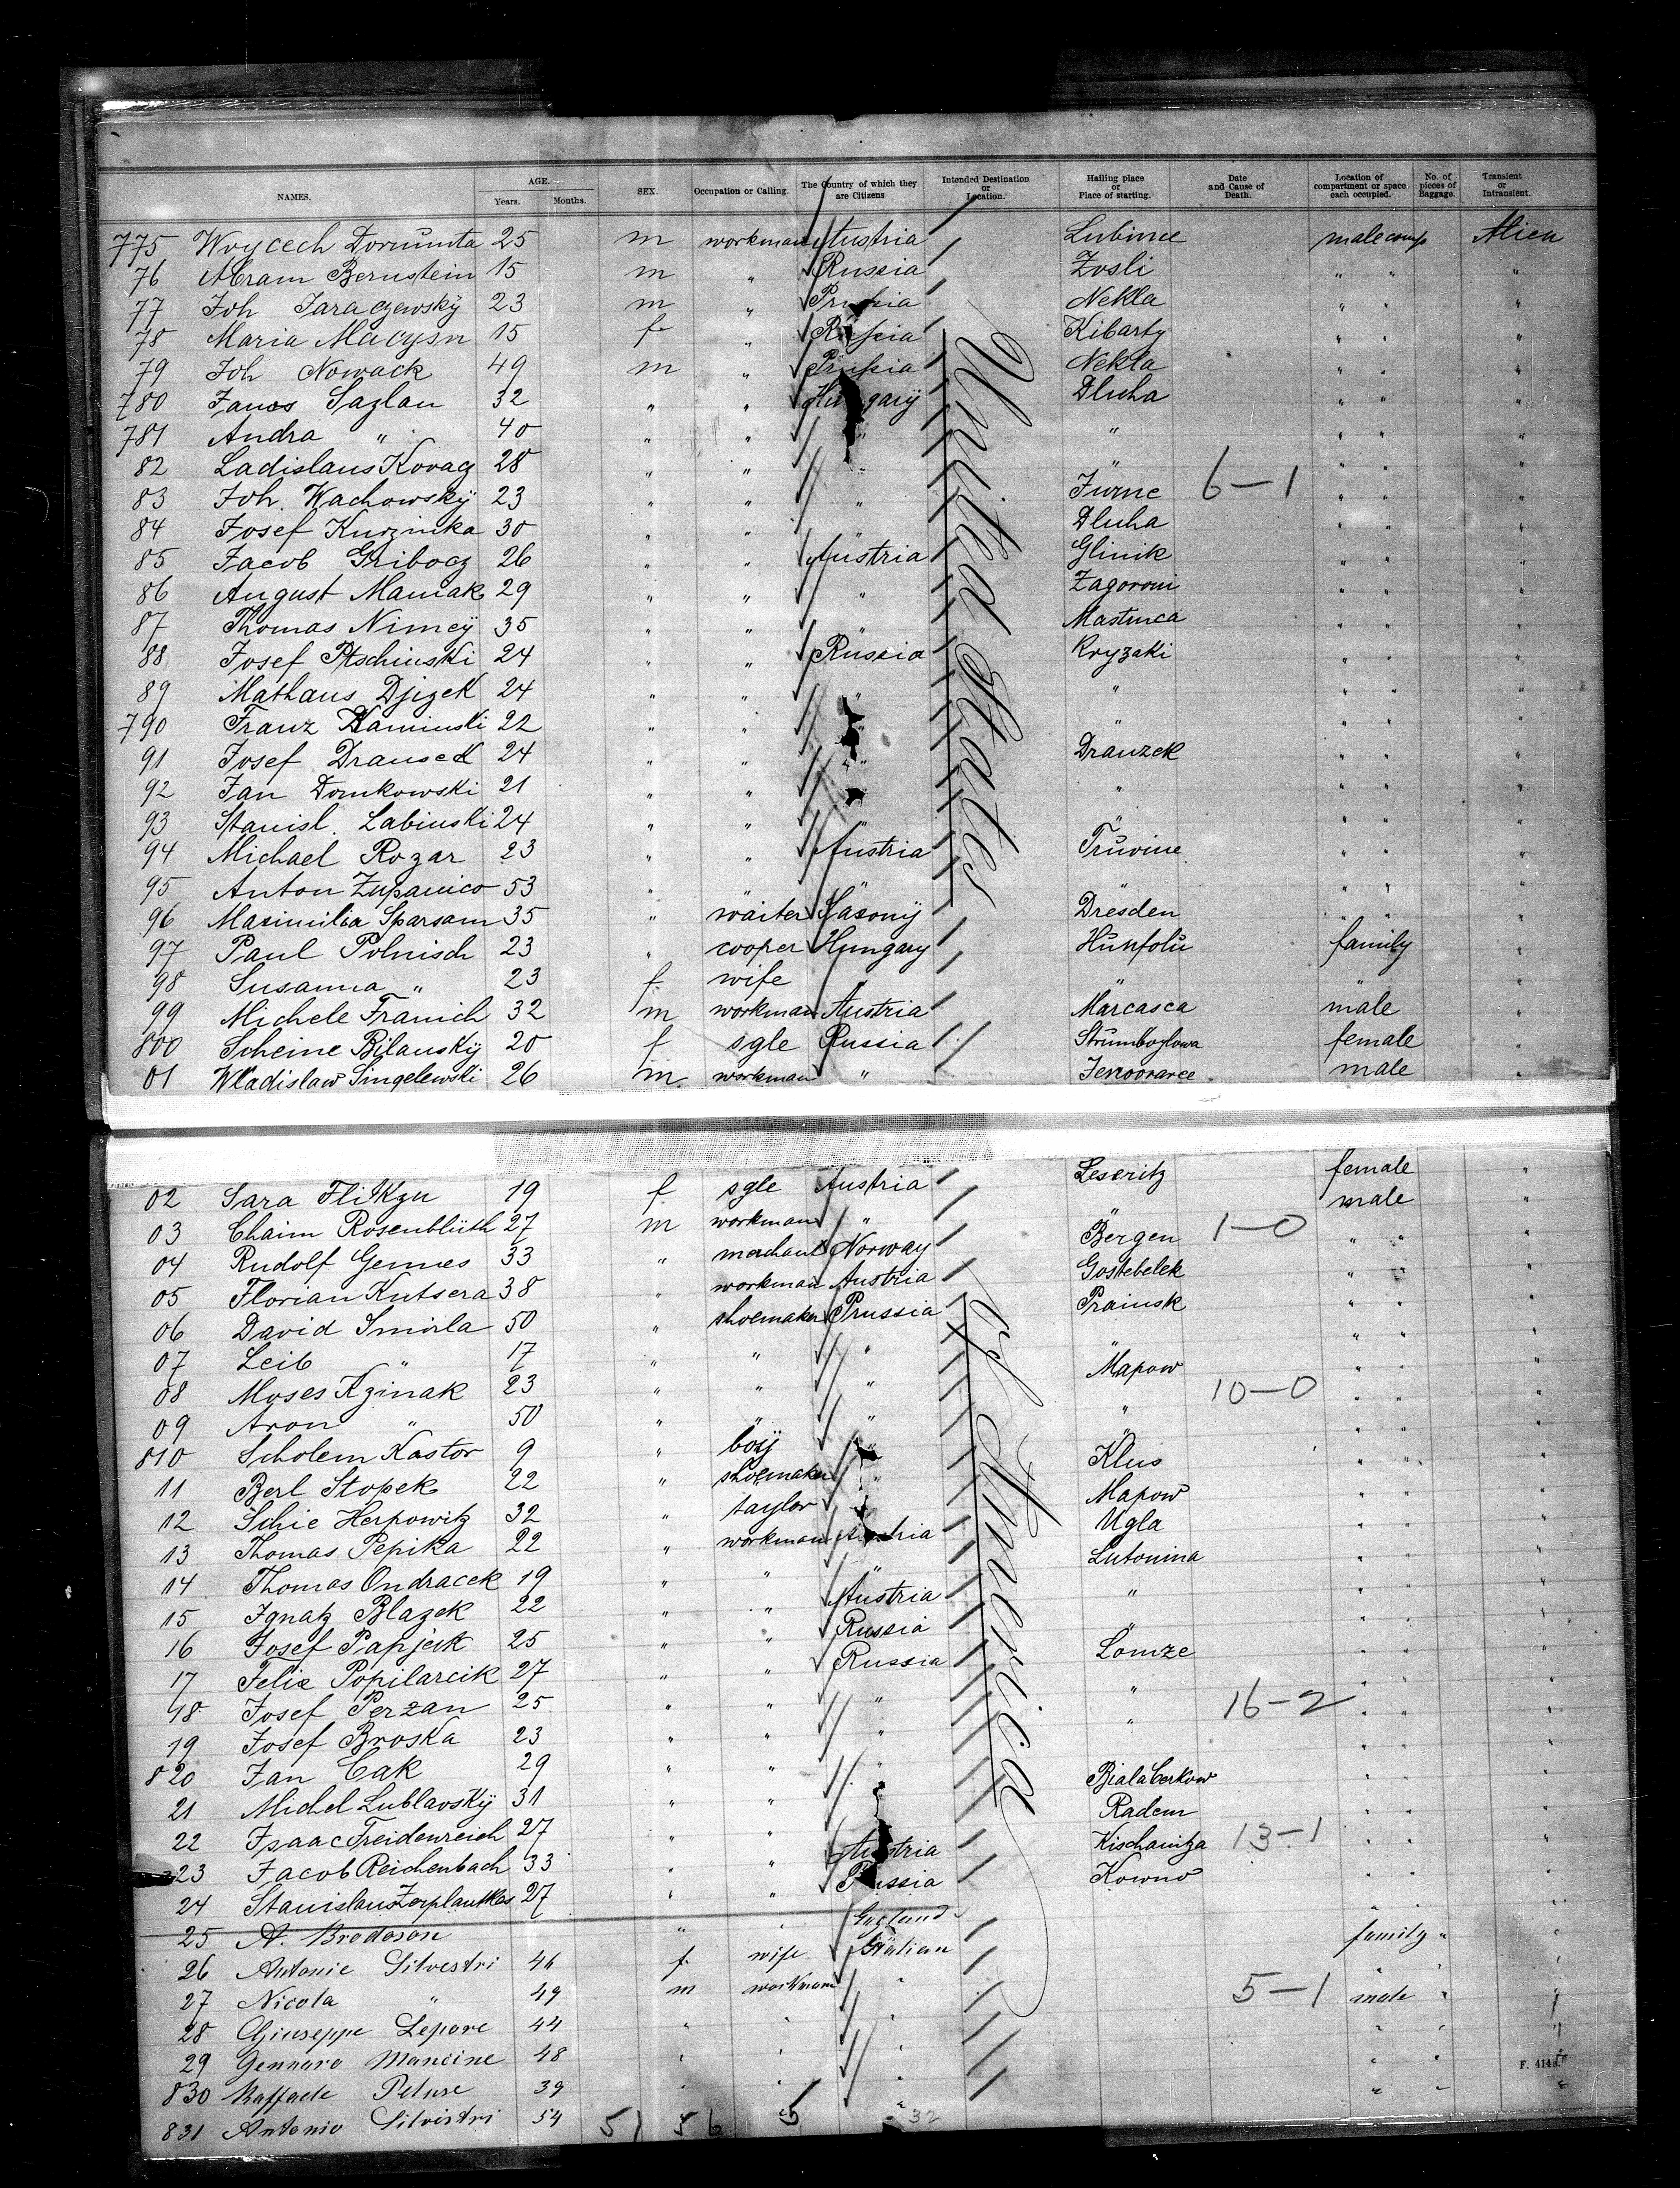 NAMES. AGE. SEX. Occupation or Calling. The Country of which they are Citizens Intended Destination or Location. Hailing place or Place of starting. Date and Cause of Death. Location of compartment or space each occupied. No. of pieces of Baggage. Transient or Intransient.
Years. Months.
775 Woycech 25 m workman Austria Lubince male comp Alien
76 Abram Bernstein 15 m " Russia Zosli " " "
77 Joh Jaraczewsky 23 m " Prussia Nekla " " "
78 Maria Macysn 15 f " Russia Kibarty " " "
79 Joh Nowack 49 m " Prussia Nekla " " "
780 Janos Sazlau 32 " " Hungary Dluha " " "
781 Andra " 40 " " " " " " "
82 Ladislaus Kovacz 28 " " " " " " "
83 Joh. Wachowsky 23 " " " Jurne 6-1 " " "
84 Josef Kuzinka 30 " " Dluha " " "
85 Jacob Gribocz 26 " " Austria Glinik " " "
86 August Maniak 29 " " " Zagoroni " " "
87 Thomas Nimcy 35 " " " Mastinca " " "
88 Josef Ptschinski 24 " " Russia Kryzaki " " "
89 Mathaus Djizek 24 " " " " " " "
790 Franz Kaminski 22 " " " " " " "
91 Josef Drauseck 24 " " " Dranzek " " "
92 Jan Domkowski 21 " " " " " " "
93 Stanisl. Labinski 24 " " " " " " "
94 Michael Rozar 23 " " Austria Truvine " " "
95 Anton Zupanico 53 " " " " " " "
96 Maximilia Sparsam 35 " waiter Saxony Dresden " " "
97 Paul Polnisch 23 " cooper Hungary Hunfolu family "
98 Susanna " 23 f. wife " " " "
99 Michele Franich 32 m workman Austria Marcasca male "
800 Scheine Bilansky 20 f sgle Russia female "
01 Wladislaw Singelewski 26 m workman " male "
United States
02 Sara 19 f sgle Austria Leseritz female "
03 Chaim Rosenblüth 27 m workman " " male "
04 Rudolf Gennes 33 " merchant Norway Bergen 1-0 " " "
05 Florian Kutsera 38 " workman Austria Gostebelek " " "
06 David Smirla 50 " shoemaker Prussia Prainsk " " "
07 Leib " 17 " " " " " " "
08 Moses Kzinak 23 " " " Mapow " " "
09 Aron " 50 " " " " 10-0 " " "
810 Scholem Kastor 9 " boy " " " " "
11 Berl Stopek 22 " shoemaker " Klus " " "
12 Schie Herpowitz 32 " taylor " Mapow " " "
13 Thomas Pepika 22 " workman Austria Ugla " " "
14 Thomas Ondracek 19 " " " Lutonina " " "
15 Ignatz Blazek 22 " " Austria " " " "
16 Josef Papjesk 25 " " Russia " " " "
17 Felix Popilarcik 27 " " Russia Lomze " " "
18 Josef Perzan 25 " " " " 16-2 " " "
19 Josef Broska 23 " " " " " " "
820 Jan Cak 29 " " " " " "
21 Michel Lublavsky 31 " " Biala Cerkow " " "
22 Isaac Freidenreich 27 " " Radem " " "
23 Jacob Reichenbach 33 " " Austria Kischanitza 13-1 " " "
24 Stanislaus 27 " " Russia Kowno " " "
25 A. Brodoson " " England
26 Antonie Silvestri 46 f. wife Italian family " "
27 Nicola " 49 m workman " " " "
28 Giuseppe Lepore 44 " " " 5-1 male " "
29 Gennaro Mancine 48 " " " " " "
830 Raffaele 39 " " " " " "
831 Antonio Silvistri 54 " " "
of America
51 56 5 32
F. 414d.